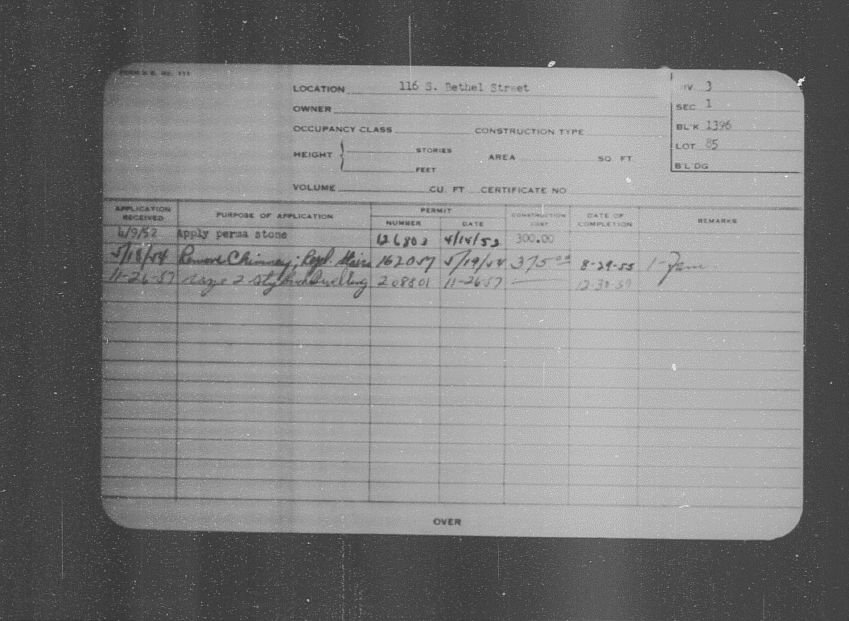 FORM B.B. NO. 111
LOCATION 116 S. Bethel Street
OWNER
OCCUPANCY CLASS CONSTRUCTION TYPE
HEIGHT STORIES FEET AREA SQ. FT.
VOLUME CU. FT. CERTIFICATE NO
DIV. 3
SEC. 1
BL'K 1396
LOT 85
B'L'DG
APPLICATION RECEIVED PURPOSE OF APPLICATION PERMIT NUMBER DATE CONSTRUCTION COST DATE OF COMPLETION REMARKS
4/9/52 Apply perma stone 126803 4/14/52 300.00
5/18/54 Remove Chimney; Repl. Stairs 162057 5/19/54 375.00 8-29-55 1-Fam.
11-26-57 Raze 2 Sty Dwelling 208801 11-26-57 12-30-57
OVER